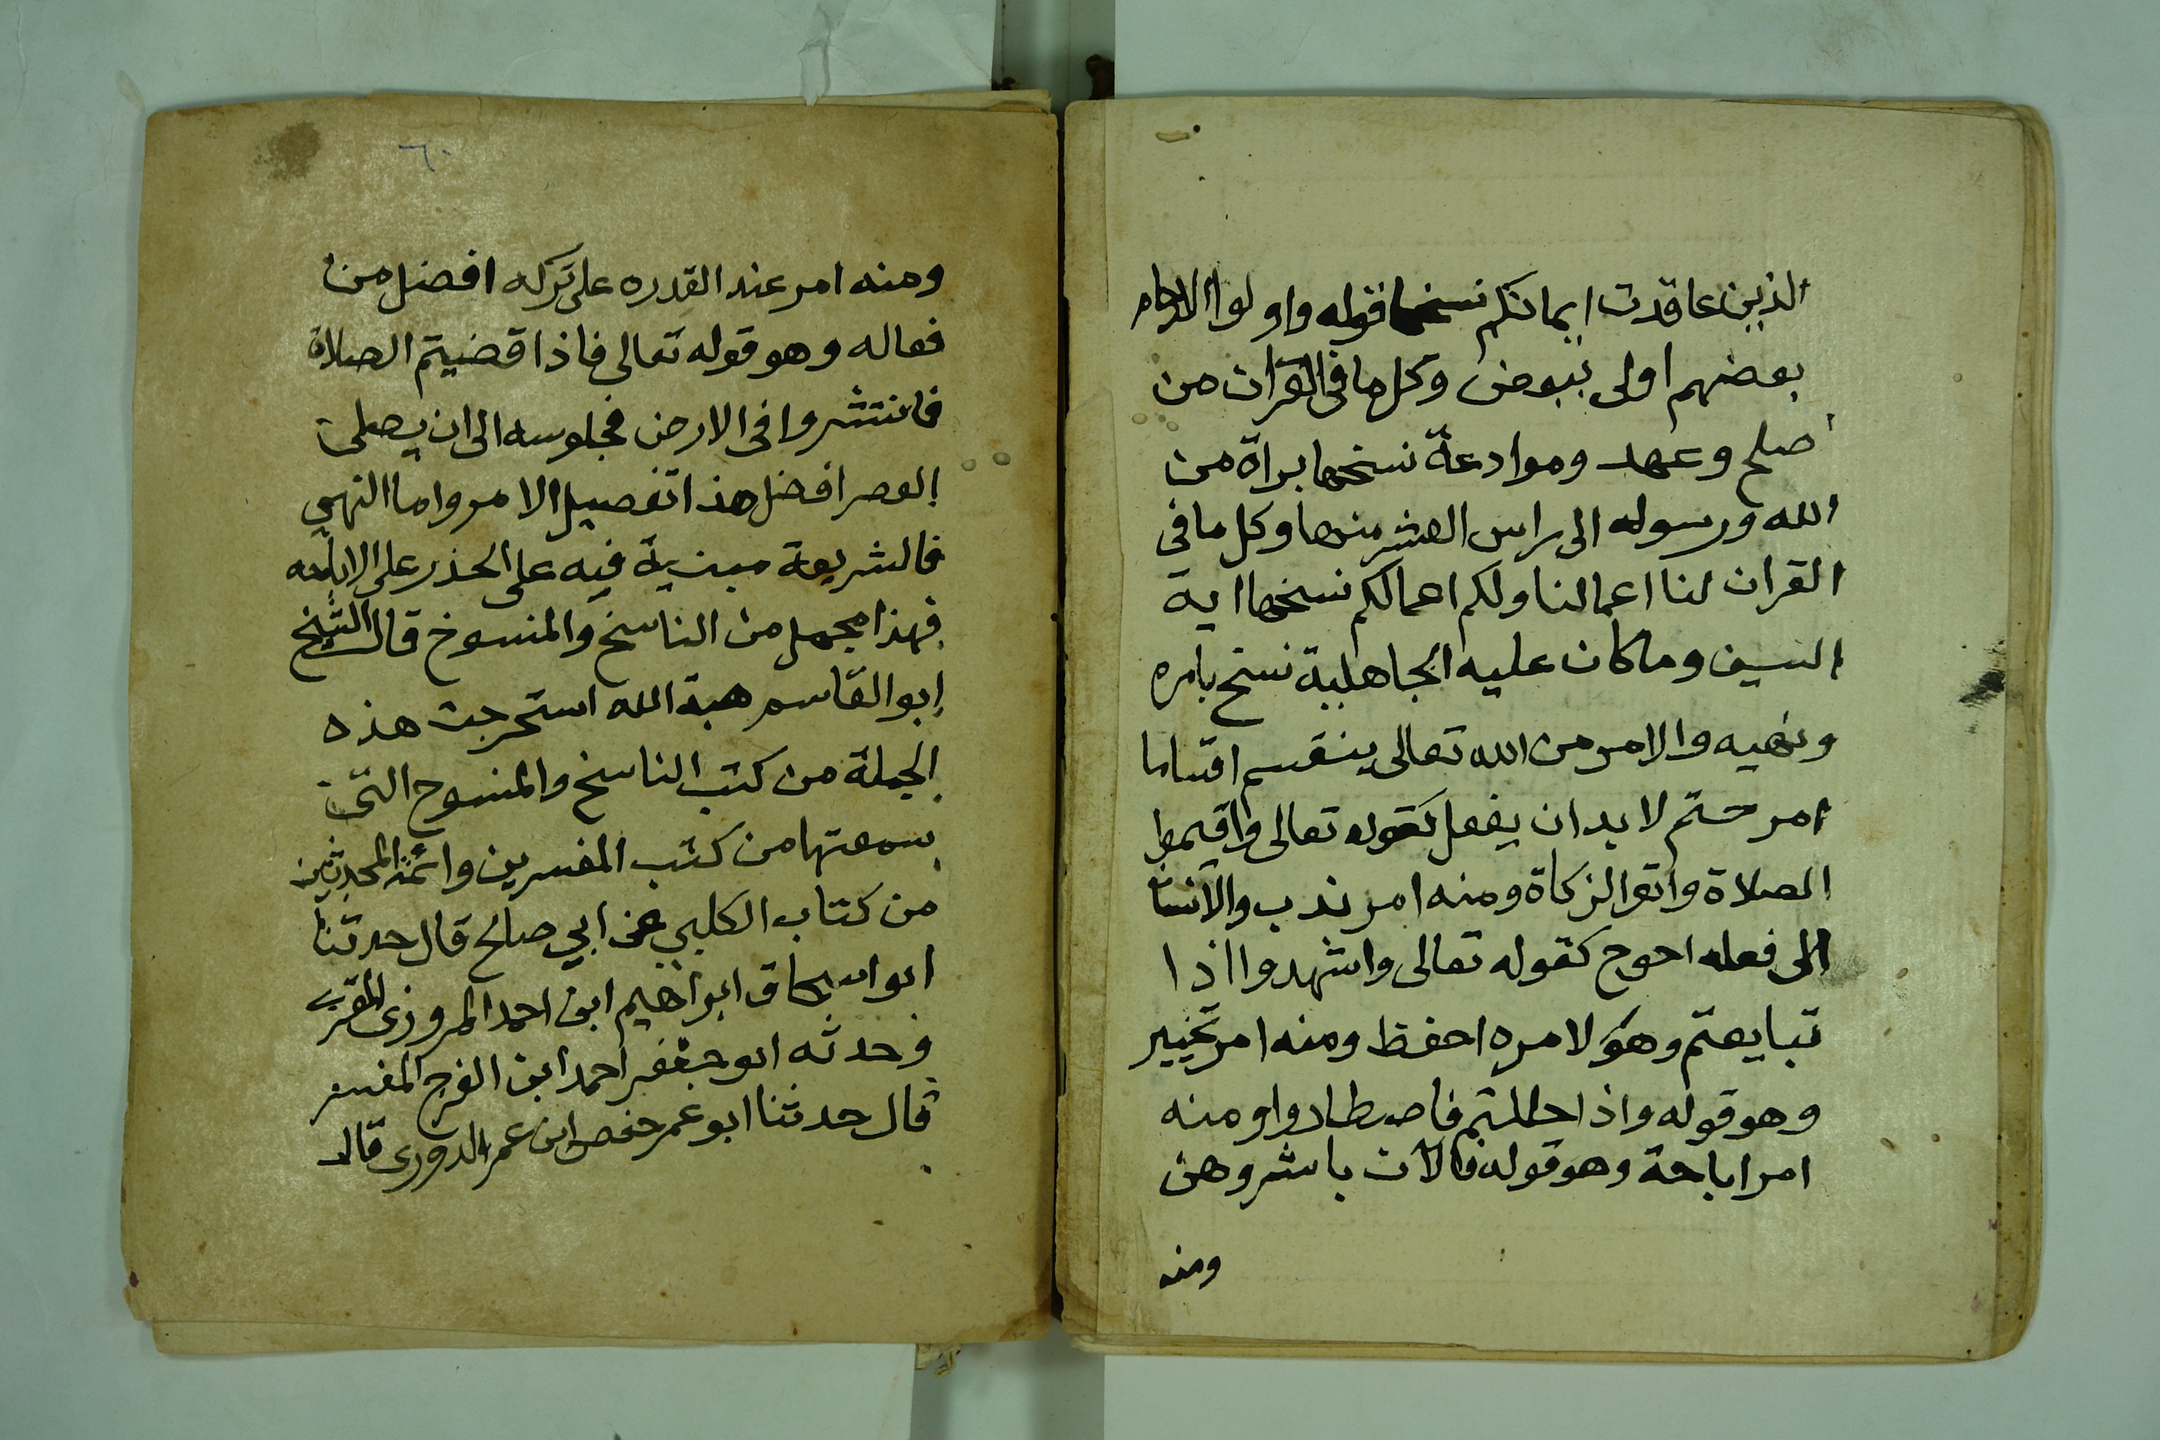 الذين عاقدت ايمانكم نسخها قوله واولوا الارحام
بعضهم اولى ببعض وكل ما في القران من
صلح وعهد وموادعة نسخها براة من
الله ورسوله الى راس العشر منها وكل ما في
القران لنا اعمالنا ولكم اعمالكم نسخها اية
السيف وما كان عليه الجاهلية نسخ بامره
ونهيه والامر من الله تعالى ينقسم اقساما
امر حتم لا بد ان يفعل كقوله تعالى واقيموا
الصلاة واتوا الزكاة ومنه امر ندب والانسان
الى فعله احوج كقوله تعالى واشهدوا اذا
تبايعتم وهو لامره احفظ ومنه امر تخيير
وهو قوله واذا حللتم فاصطادوا ومنه
امر اباحة وهو قوله فالآن باشروهن
ومنه
٦٠
ومنه امر عند القدره على تركه افضل من
فعاله وهو قوله تعالى فاذا قضيتم الصلاة
فانتشروا في الارض فجلوسه الى ان يصلي
العصر افضل هذا تفصيل الامر واما النهي
فالشريعة مبنية فيه على الحذر على الاباحه
فهذا مجمل من الناسخ والمنسوخ قال الشيخ
ابو القاسم هبة الله استخرجت هذه
الجملة من كتب الناسخ والمنسوخ التي
سمعتها من كتب المفسرين وائمة المحدثين
من كتاب الكلبي عن ابي صالح قال حدثنا
ابو اسحاق ابراهيم ابن احمد المروزي المقري
وحدثه ابو جعفر احمد ابن الفرج المفسر
قال حدثنا ابو عمر حفص ابن عمر الدوري قال